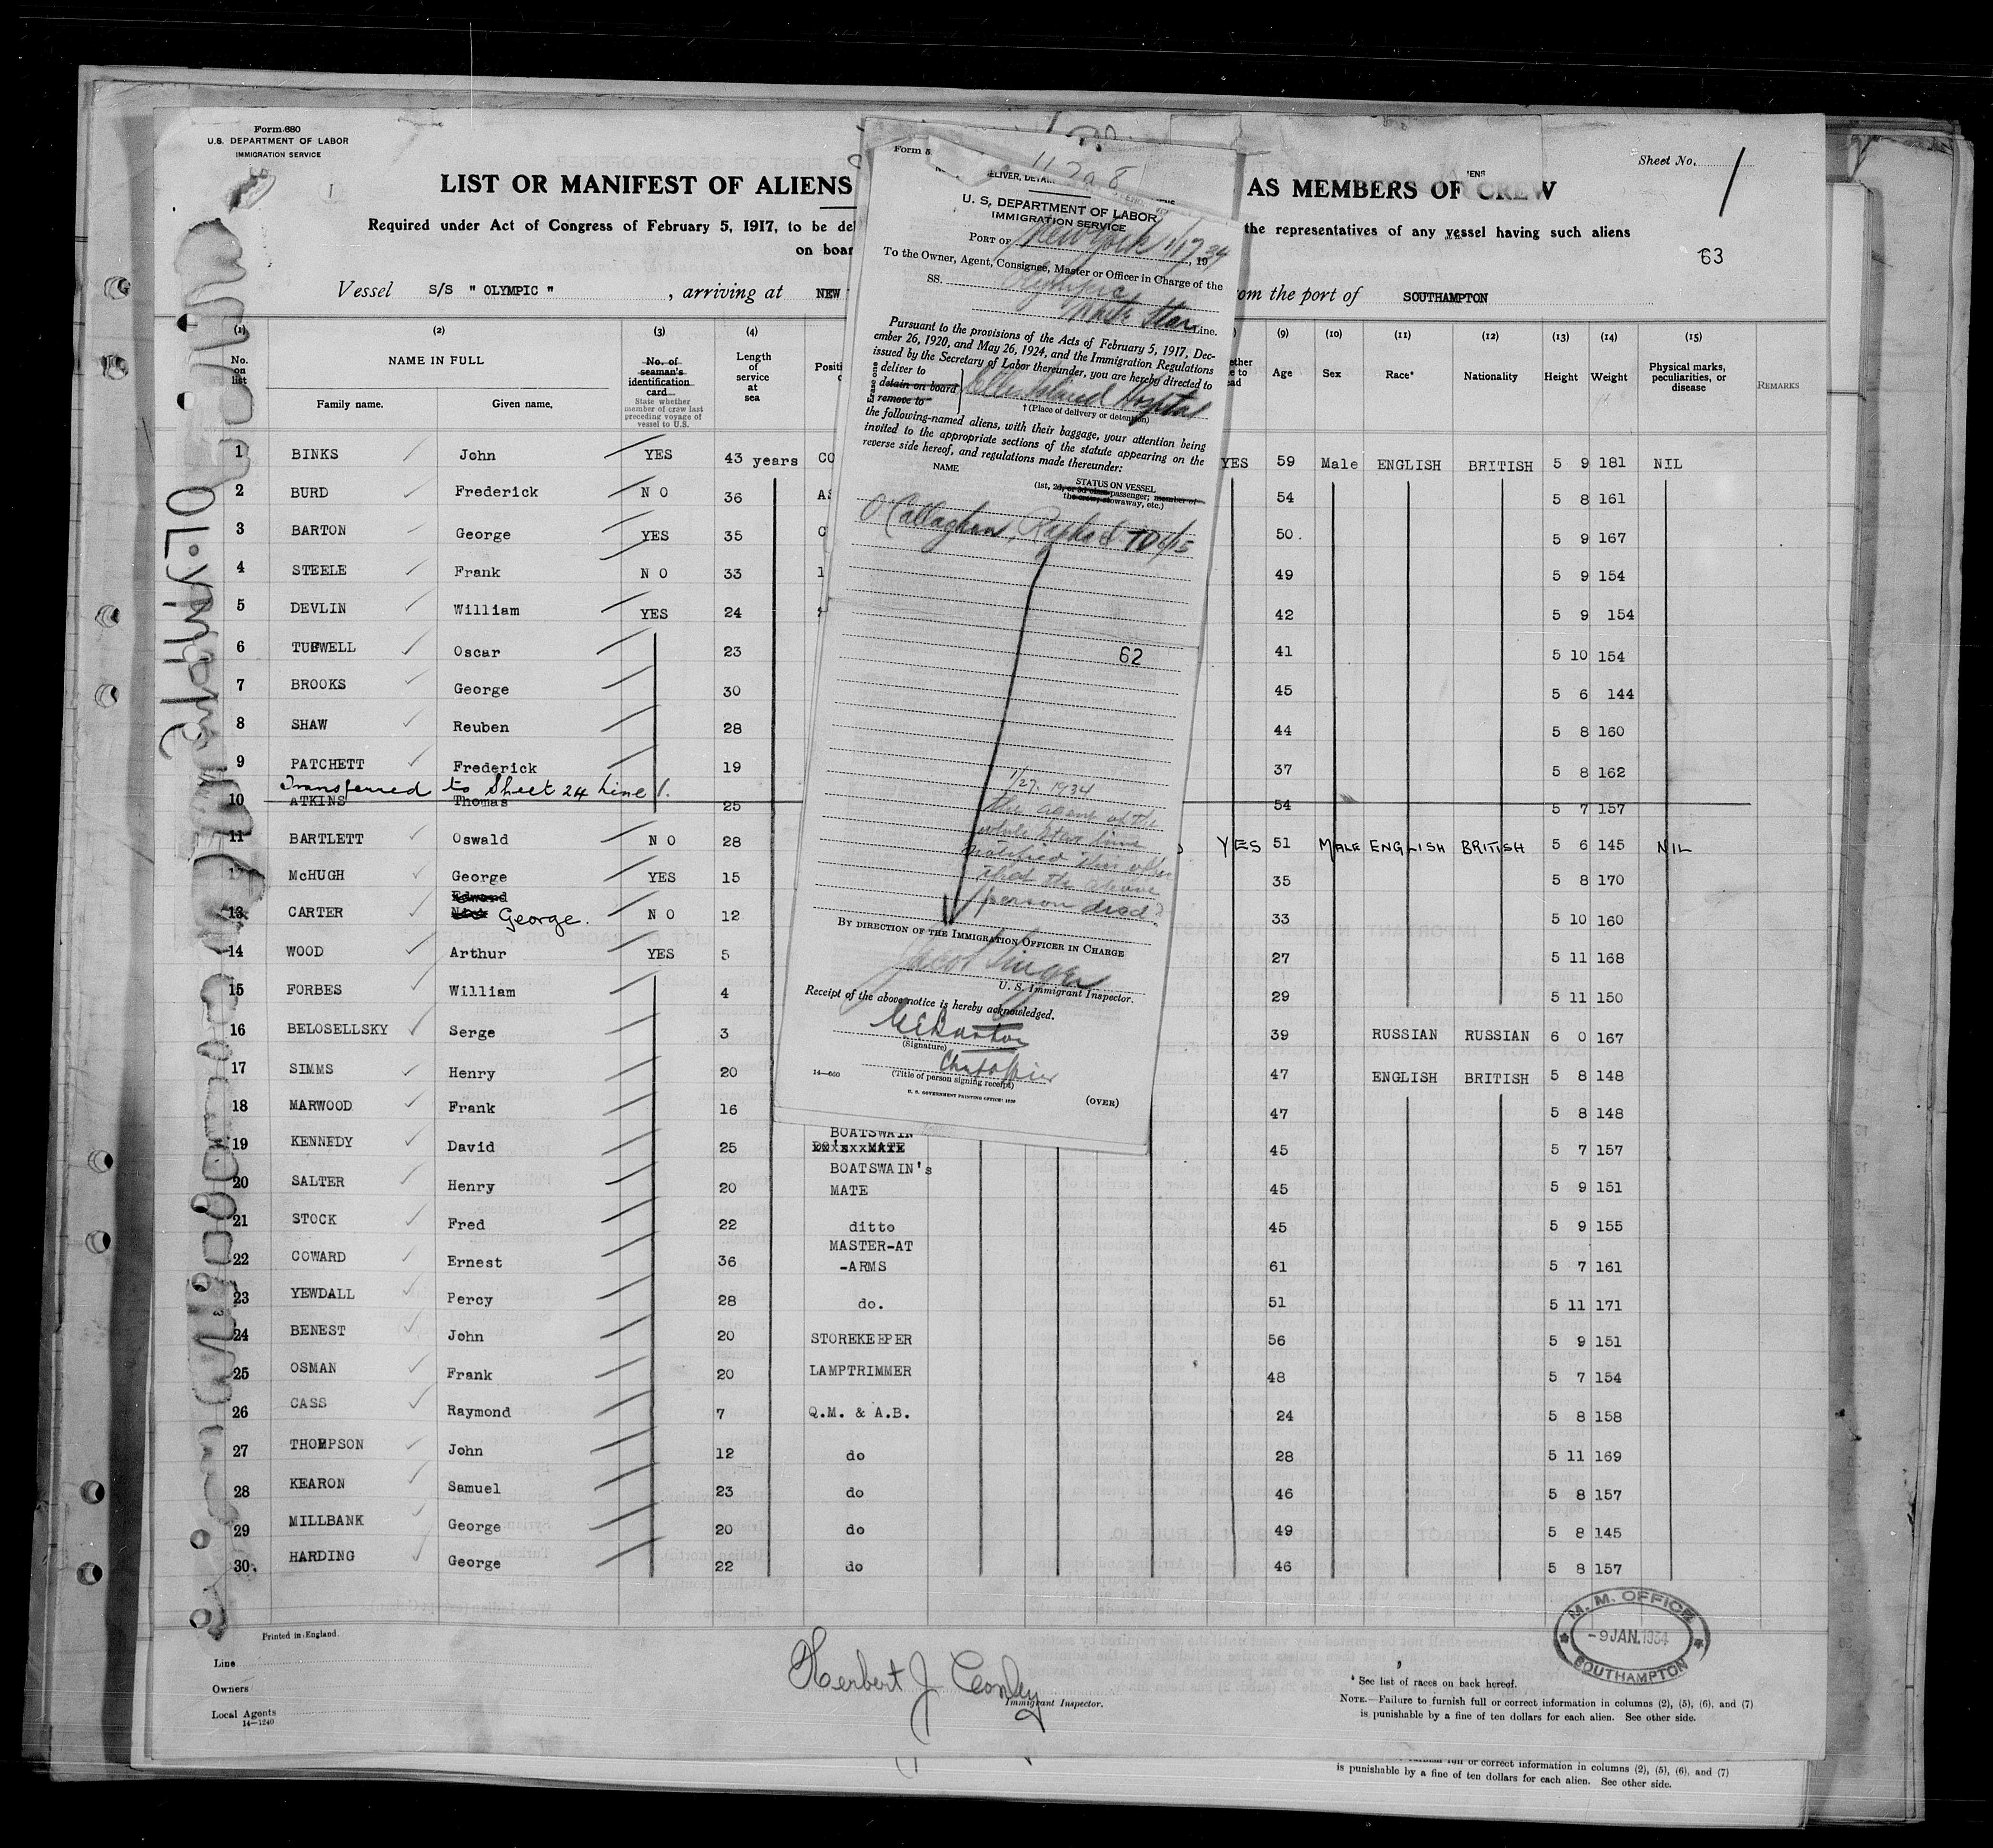 Form 680
U.S. DEPARTMENT OF LABOR
IMMIGRATION SERVICE
Sheet No. 1
LIST OR MANIFEST OF ALIENS AS MEMBERS OF CREW
Required under Act of Congress of February 5, 1917, to be del the representatives of any vessel having such aliens
on boar
63
Vessel S/S " OLYMPIC " , arriving at NEW om the port of SOUTHAMPTON
OLYMPIC
(1) (2) (3) (4) (9) (10) (11) (12) (13) (14) (15)
No. on list NAME IN FULL No. of seaman's identification card Length of service at sea Positi Age Sex Race* Nationality Height Weight Physical marks, peculiarities, or disease REMARKS
Family name. Given name. State whether member of crew last preceding voyage of vessel to U.S.
1 BINKS John YES 43 years CO YES 59 Male ENGLISH BRITISH 5 9 181 NIL
2 BURD Frederick NO 36 AS 54 5 8 161
3 BARTON George YES 35 C 50. 5 9 167
4 STEELE Frank NO 33 1 49 5 9 154
5 DEVLIN William YES 24 42 5 9 154
6 TUBWELL Oscar 23 41 5 10 154
7 BROOKS George 30 45 5 6 144
8 SHAW Reuben 28 44 5 8 160
9 PATCHETT Frederick 19 37 5 8 162
Transferred to Sheet 24 Line 1.
10 ATKINS Thomas 25 54 5 7 157
11 BARTLETT Oswald NO 28 YES 51 MALE ENGLISH BRITISH 5 6 145 NIL
12 McHUGH George YES 15 35 5 8 170
Edward
13 CARTER George. NO 12 33 5 10 160
14 WOOD Arthur YES 5 27 5 11 168
15 FORBES William 4 29 5 11 150
16 BELOSELLSKY Serge 3 39 RUSSIAN RUSSIAN 6 0 167
17 SIMMS Henry 20 47 ENGLISH BRITISH 5 8 148
18 MARWOOD Frank 16 47 5 8 148
BOATSWAIN
19 KENNEDY David 25 MATE 45 5 7 157
BOATSWAIN's
20 SALTER Henry 20 MATE 45 5 9 151
21 STOCK Fred 22 ditto 45 5 9 155
MASTER-AT
22 COWARD Ernest 36 -ARMS 61 5 7 161
23 YEWDALL Percy 28 do. 51 5 11 171
24 BENEST John 20 STOREKEEPER 56 5 9 151
25 OSMAN Frank 20 LAMPTRIMMER 48 5 7 154
26 CASS Raymond 7 Q.M. & A.B. 24 5 8 158
27 THOMPSON John 12 do 28 5 11 169
28 KEARON Samuel 23 do 46 5 8 157
29 MILLBANK George 20 do 49 5 8 145
30. HARDING George 22 do 46 5 8 157
Form 5
1128
U. S. DEPARTMENT OF LABOR
IMMIGRATION SERVICE
PORT OF New York 1/17, 1934
To the Owner, Agent, Consignee, Master or Officer in Charge of the
SS. Olympic
White Star Line.
Pursuant to the provisions of the Acts of February 5, 1917, Dec-
ember 26, 1920, and May 26, 1924, and the Immigration Regulations
issued by the Secretary of Labor thereunder, you are hereby directed to
deliver to
detain on board Ellis Island Hospital
remove to
† (Place of delivery or detention)
the following-named aliens, with their baggage, your attention being
invited to the appropriate sections of the statute appearing on the
reverse side hereof, and regulations made thereunder:
NAME STATUS ON VESSEL
(1st, 2d, or 3d class passenger; member of
the crew, stowaway, etc.)
O'Callaghan,
62
1/27. 1934
the agent of the
White Star line
notified this office
that the above
person died
BY DIRECTION OF THE IMMIGRATION OFFICER IN CHARGE
Jacob Singer
U. S. Immigrant Inspector.
Receipt of the above notice is hereby acknowledged.
(Signature)
(Title of person signing receipt)
14—660
U. S. GOVERNMENT PRINTING OFFICE
(OVER)
Printed in England.
Line
Owners
Local Agents
14—1240
Herbert J. Conley
Immigrant Inspector.
M. M. OFFICE
-9 JAN. 1934
SOUTHAMPTON
* See list of races on back hereof.
NOTE.—Failure to furnish full or correct information in columns (2), (5), (6), and (7)
is punishable by a fine of ten dollars for each alien. See other side.
full or correct information in columns (2), (5), (6), and (7)
is punishable by a fine of ten dollars for each alien. See other side.